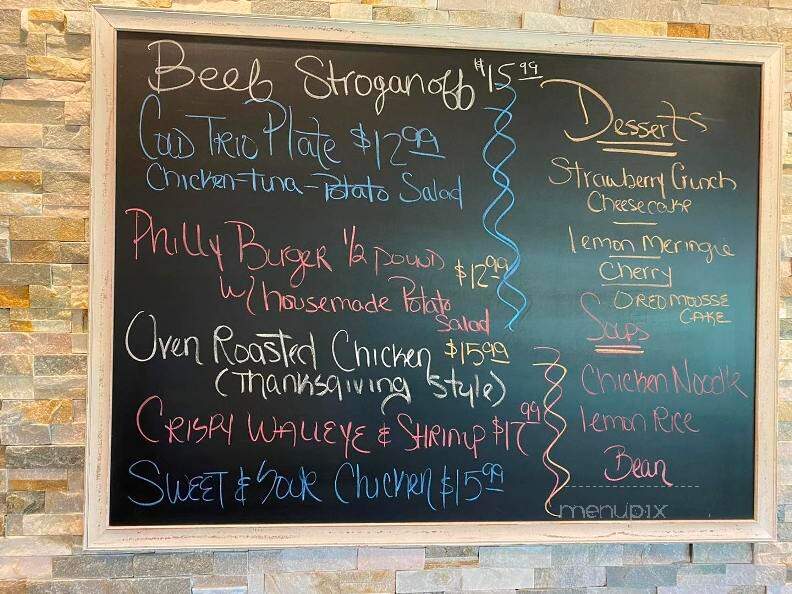 Beef Stroganoff $15.99
Cold Trio Plate $12.99
Chicken-tuna-Potato Salad
Philly Burger 1/2 pound $12.99
w/ housemade Potato
Salad
Oven Roasted Chicken $15.99
(Thanksgiving Style)
Crispy Walleye & Shrimp $17.99
Sweet & Sour Chicken $15.99
Desserts
Strawberry Crunch
Cheesecake
lemon Meringue
Cherry
OREO MOUSSE
CAKE
Soups
Chicken Noodle
lemon Rice
Bean
menupix